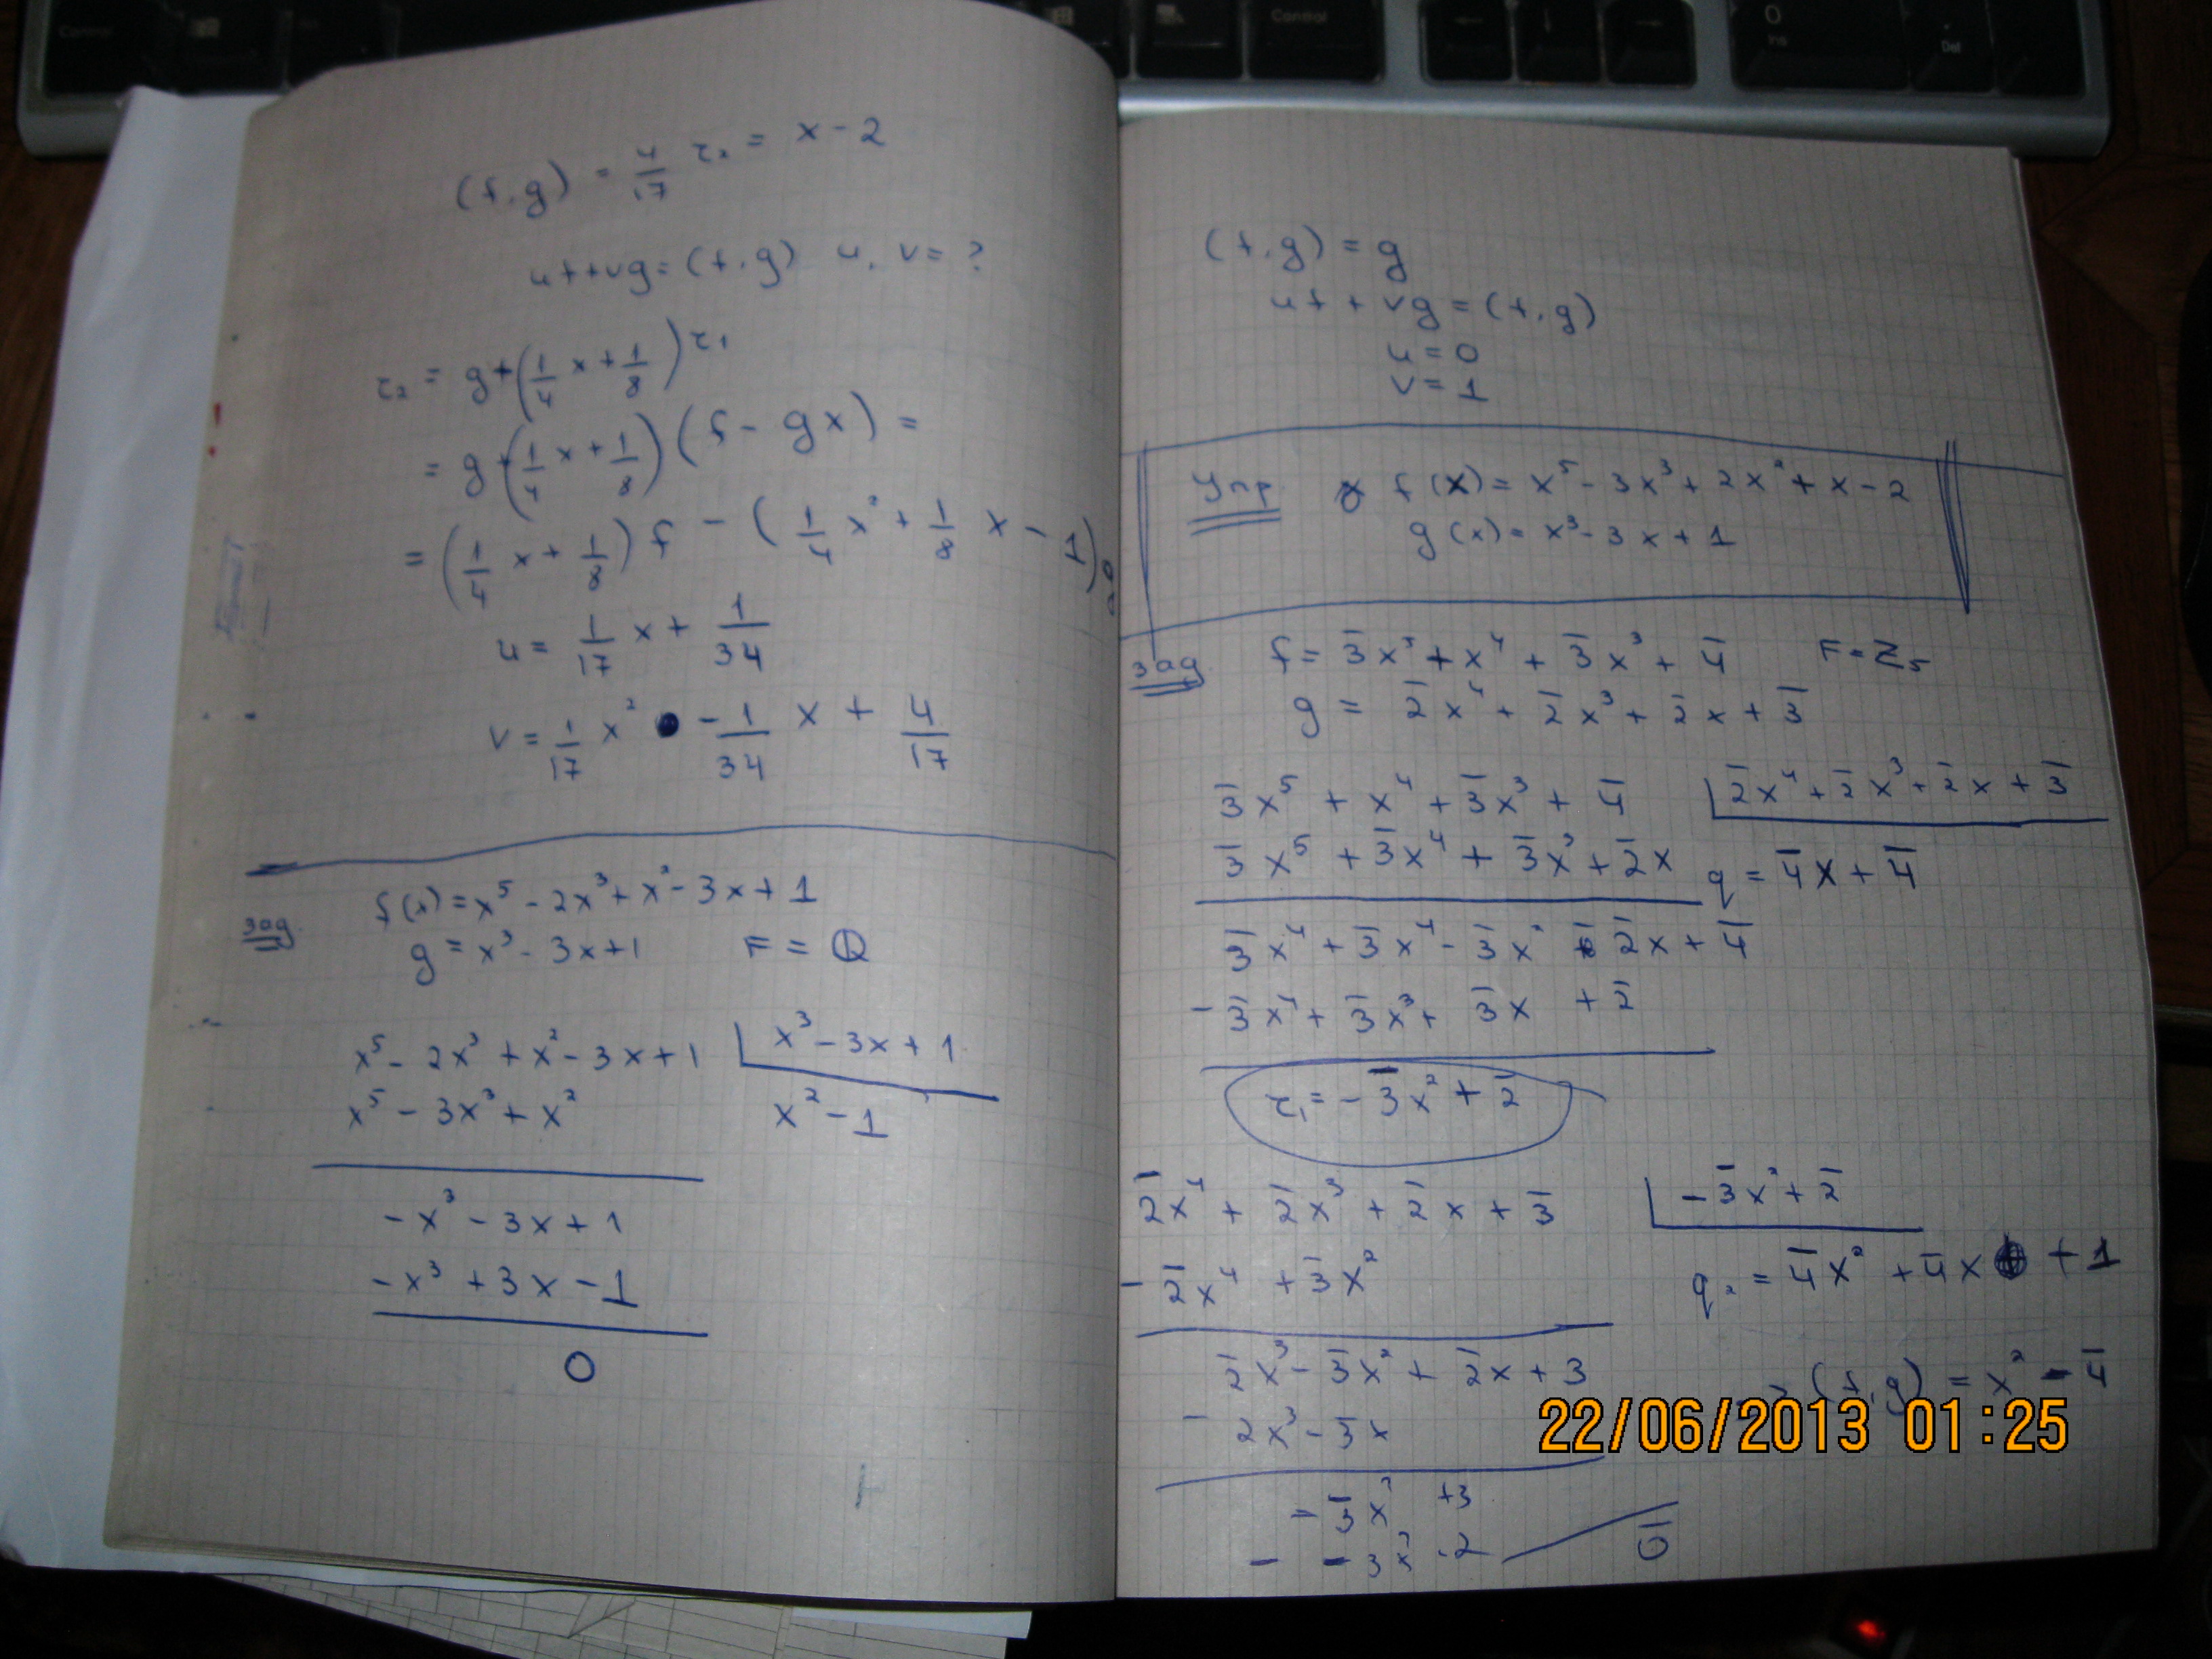 Control
Control
0
Ins
Del
(f,g) = 4/17 r₂ = x - 2
uf + vg = (f,g) u, v = ?
r₂ = g + (1/4 x + 1/8) r₁
= g + (1/4 x + 1/8)(f - gx) =
= (1/4 x + 1/8) f - (1/4 x² + 1/8 x - 1) g
u = 1/17 x + 1/34
v = 1/17 x² - 1/34 x + 4/17
зад. f(x) = x⁵ - 2x³ + x² - 3x + 1
g = x³ - 3x + 1 F = Q
x⁵ - 2x³ + x² - 3x + 1 | x³ - 3x + 1
x⁵ - 3x³ + x² x² - 1
-x³ - 3x + 1
-x³ + 3x - 1
0
(f,g) = g
uf + vg = (f,g)
u = 0
v = 1
Упр. f(x) = x⁵ - 3x³ + 2x² + x - 2
g(x) = x³ - 3x + 1
зад f = 3̄x⁵ + x⁴ + 3̄x³ + 4̄ F = Z₅
g = 2̄x⁴ + 2̄x³ + 2̄x + 3̄
3̄x⁵ + x⁴ + 3̄x³ + 4̄ | 2̄x⁴ + 2̄x³ + 2̄x + 3̄
3̄x⁵ + 3̄x⁴ + 3̄x² + 2̄x q = 4̄x + 4̄
3̄x⁴ + 3̄x⁴ - 3̄x² 2̄x + 4̄
- 3̄x⁴ + 3̄x³ + 3̄x + 2̄
r₁ = -3̄x² + 2̄
2̄x⁴ + 2̄x³ + 2̄x + 3̄ | -3̄x² + 2̄
- 2̄x⁴ + 3̄x² q₂ = 4̄x² + 4̄x + 1
2̄x³ - 3̄x² + 2̄x + 3 (f,g) = x² - 4̄
- 2x³ - 3̄x
- 3̄x² +3
- -3x² -2 0̄
22/06/2013 01:25